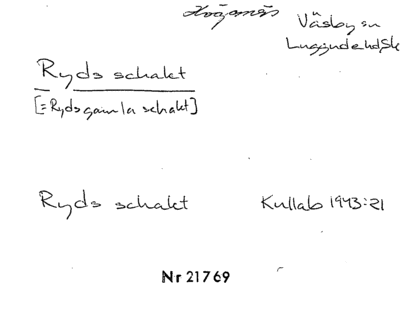 Väsby sn
Luggude hd Sk
Ryds schakt
[= Ryds gamla schakt]
Ryds schakt Kullab 1943:21
Nr 21769